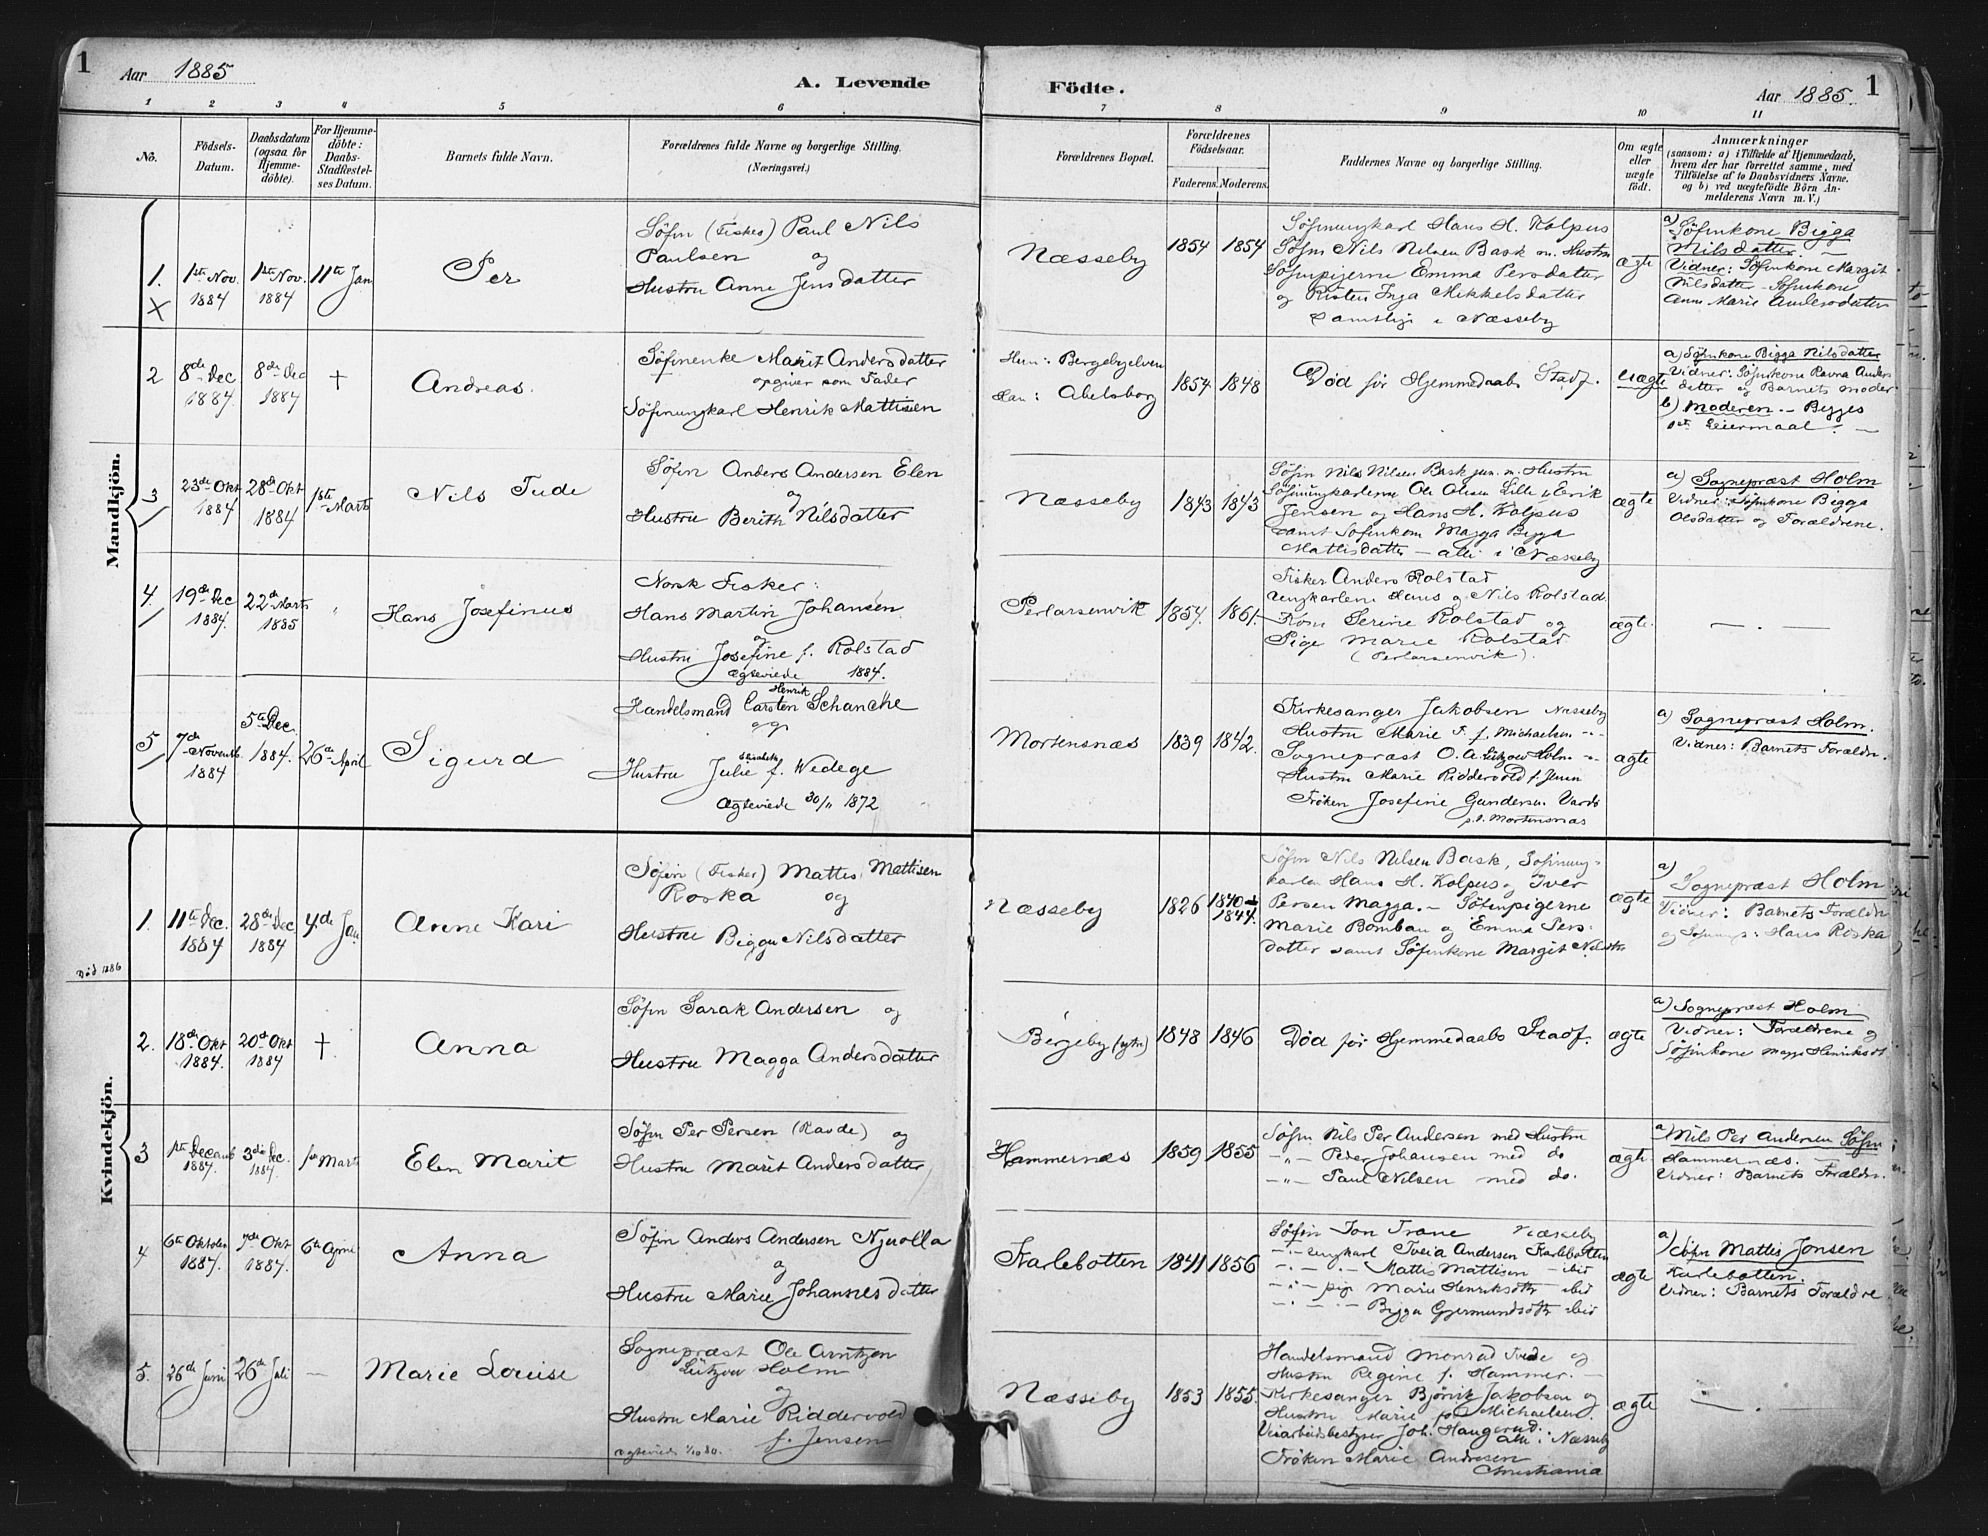 1
Aar 1885
A. Levende
Födte.
Aar 1885.
1
1 2 3 4 5 6 7 8 9 10 11
No.
Födsels-
Datum.
Daabsdatum
(ogsaa for
Hjemme-
döbte).
For Hjemme-
döbte:
Daabs-
Stadfæstel-
ses Datum.
Barnets fulde Navn.
Forældrenes fulde Navne og borgerlige Stilling.
(Næringsvei.)
Forældrenes Bopæl.
Forældrenes
Födselsaar.
Faderens.
Moderens.
Faddernes Navne og borgerlige Stilling.
Om ægte
eller
uægte
födt.
Anmærkninger
(saasom: a) i Tilfælde af Hjemmedaab,
hvem der har forrettet samme, med
Tilföielse af to Daabsvidners Navne,
og b) ved uægtefödte Börn An-
melderens Navn m. V.)
Mandkjön.
1.
1ste Nov.
1884
1ste Nov.
1884
11te Jan
Per
Söfin (Fisker) Paul Nils
Paulsen og
Hustru Anne Jensdatter
Næsseby
1854
1854
Söfinungkarl Hans H. Kolpus
Söfin Nils Nilsen Bask m. Hustru
Söfinpigerne Emma Persdatter
og Risten Inga Mikkelsdatter
Samtlige i Næsseby
ægte
a) Söfinkone Bigga
Nilsdatter. —
Vidner: Söfinkone Margit
Nilsdatter Söfinkone
Anne Marie Andersdatter
2
8de Dec
1884.
8de Dec
1884
†
Andreas.
Söfinenke Marit Andersdatter
opgiver som Fader
Söfinungkarl Henrik Mattisen
Hun: Bergebyelven
Han: Abelsborg
1854
1848
Död för Hjemmedaabs Stadf.
Uægte
a) Söfinkone Bigga Nilsdatter
Vidner: Söfinkone Ravna Anders
datter og Barnets moder
b) Moderen. — Begges
1ste Leiermaal. —
3
23de Okt
1884
28de Okt
1884
1ste Marts
Nils Tude
Söfin Anders Andersen Elen
og
Hustru Berith Nilsdatter
Næsseby
1843
1843
Söfin Nils Nilsen Bask jun. m. Hustru
Söfinungkarlerne Ole Olsen Lille, Erik
Jensen og Hans H. Kolpus
samt Söfinkone Magga Bigga
Mattisdatter — alle i Næsseby
ægte
a) Sognepræst Holm
Vidner: Söfinkone Bigga
Olsdatter og Forældrene.
4.
19de Dec
1884.
22de Marts
1885
"
Hans Josefinus
Norsk Fisker:
Hans Martin Johansen
og
Hustru Josefine f. Rolstad
Ægteviede 1884.
Perlarsenvik
1857.
1861.
Fisker Anders Rolstad
Ungkarlene Hans og Nils Rolstad
Kone Serine Rolstad og
Pige Marie Rolstad
(Perlarsenvik).
ægte.
— . —
5
7de Novemb.
1884
5te Dec.
1884.
26de April
Sigurd
Handelsmand Carsten Henrik Schancke
og
Hustru Julie Elisabeth f. Wedege
Ægteviede 30/11 1872
Mortensnæs
1839
1842.
Kirkesanger Jakobsen Næsseby
Hustru Marie F. f. Michaelsen -"-
Sognepræst O. A. Lützow Holm -"-
Hustru Marie Riddervold f. Jensen
Fröken Josefine Gundersen Vardö
p.t. Mortensnæs
ægte
a) Sognepræst Holm.
Vidner: Barnets Forældre.
Kvindekjön.
1.
11te Dec.
1884
28de Dec
1884
4de Jan.
Död 1886
Anne Kari
Söfin (Fisker) Mattis Mattisen
Roska og
Hustru Bigga Nilsdatter
Næsseby
1826
1840
1844.
Söfin Nils Nilsen Bask, Söfinung-
karlen Hans H. Kolpus og Iver
Persen Magga. — Söfinpigerne
Marie Bomban og Emma Pers-
datter samt Söfinkone Margit Nilsdtr
ægte
a) Sognepræst Holm
Vidner: Barnets Forældre
og Söfinungk: Hans Roska
2.
18de Okt
1884.
20de Okt
1884
†
Anna
Söfin Sarak Andersen og
Hustru Magga Andersdatter
Bergeby (ytre)
1848
1846
Död för Hjemmedaabs Stadf.
ægte
a) Sognepræst Holm
Vidner: Forældrene og
Söfinkone Magga Henriksdt
3
1ste Decemb
1884.
3die Dec.
1884.
1ste Marts
Elen Marit
Söfin Per Persen (Ravde) og
Hustru Marit Andersdatter
Hammernæs
1859
1855
Söfin Nils Per Andersen med Hustru
-"- Peder Johansen med do
-"- Paul Nilsen med do.
ægte
a) Nils Per Andersen Söfin
Hammernæs. —
Vidner: Barnets Forældre.
4
6te Oktober
1884.
7de Okt
1884.
6te April
Anna
Söfin Anders Andersen Njuolla
og
Hustru Marie Johannesdatter
Karlebotten
1841
1856
Söfin Jon Trane Næsseby
-"- ungkarl Iveia Andersen Karlebotten
-"- -"- Mattis Mattisen ibid
-"- pige Marie Henriksdtr ibid
-"- -"- Bigga Gjermundsdtr ibid
ægte
a) Söfin Mattis Jonsen
Karlebotten.
Vidner: Barnets Forældre
5.
26de Juni
26de Juli
—
Marie Louise
Sognepræst Ole Arntzen
Lützow Holm
og
Hustru Marie Riddervold
f. Jensen
ægteviede 1/10 80.
Næsseby
1853
1855.
Handelsmand Monrad Tvede og
Hustru Regine f. Hammer. —
Kirkesanger Björvik Jakobsen og
Hustru Marie f. Michaelsen.
Veiarbeidsbestyrer Joh. Haugerud.
alle i Næsseby
Fröken Marie Andresen
Christiania
ægte
— . —